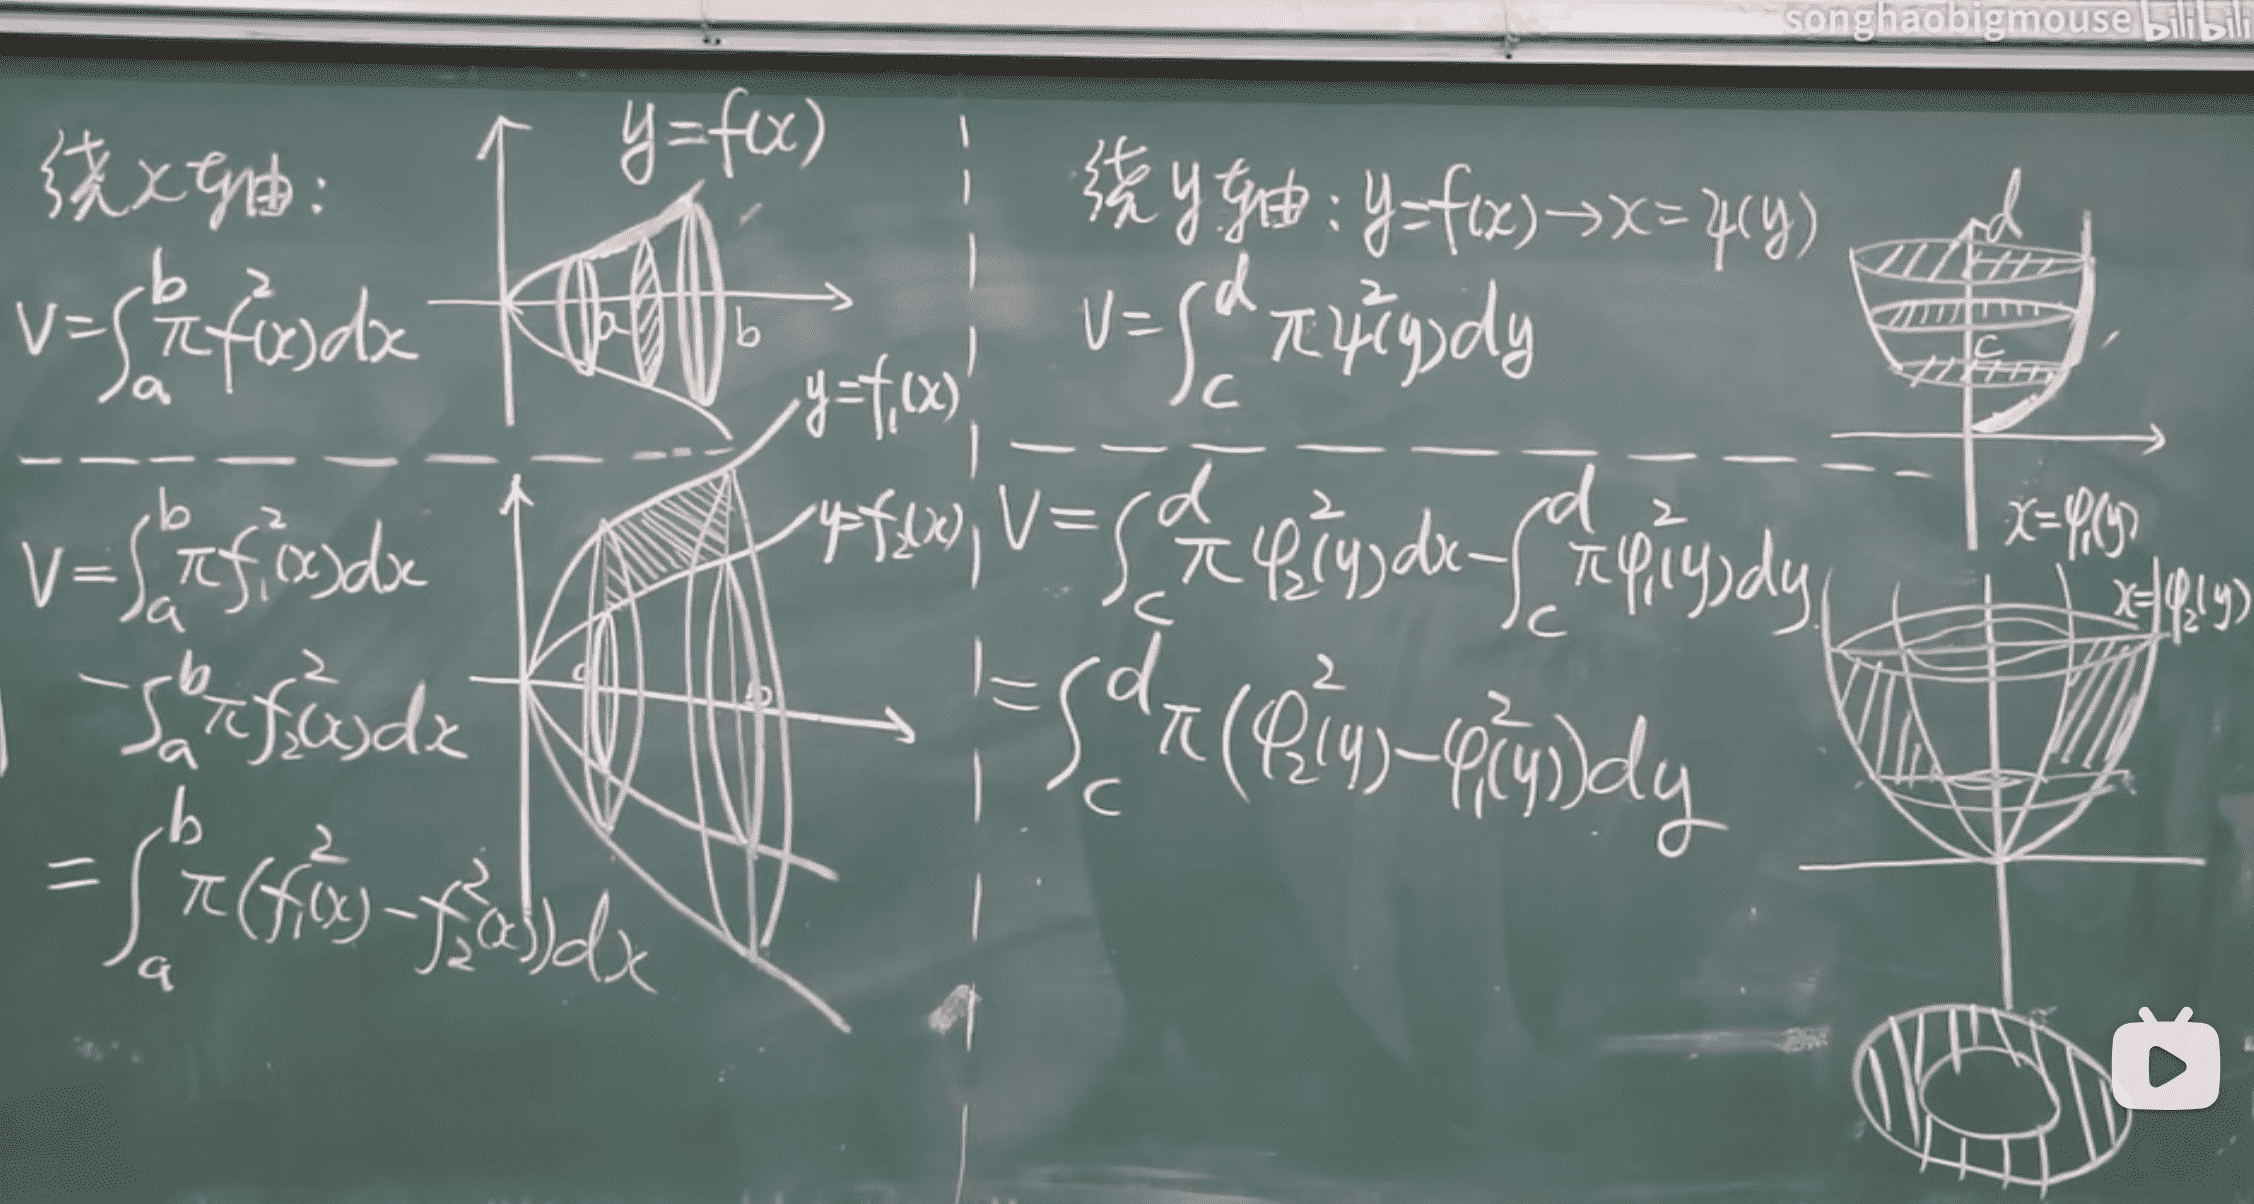 songhaobigmouse bilibili
绕x轴:
y=f(x)
V=∫_a^b πf²(x)dx
a
b
y=f₁(x)
y=f₂(x)
V=∫_a^b πf₁²(x)dx
-∫_a^b πf₂²(x)dx
=∫_a^b π(f₁²(x)-f₂²(x))dx
a
b
绕y轴:y=f(x)→x=ψ(y)
V=∫_c^d πψ²(y)dy
d
c
V=∫_c^d πφ₂²(y)dx-∫_c^d πφ₁²(y)dy
=∫_c^d π(φ₂²(y)-φ₁²(y))dy
x=φ₁(y)
x=φ₂(y)